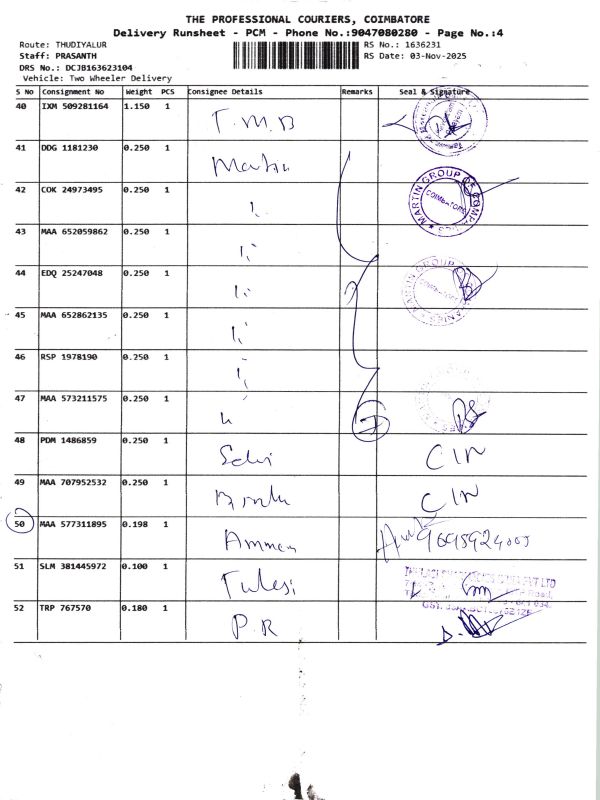 THE PROFESSIONAL COURIERS, COIMBATORE
Delivery Runsheet - PCM - Phone No.:9047080280 - Page No.:4
Route: THUDIYALUR
Staff: PRASANTH
DRS No.: DCJB163623104
Vehicle: Two Wheeler Delivery
RS No.: 1636231
RS Date: 03-Nov-2025
S No Consignment No Weight PCS Consignee Details Remarks Seal & Signature
40 IXM 509281164 1.150 1 T.M.B
41 DDG 1181230 0.250 1 Martin
42 COK 24973495 0.250 1
MARTIN GROUP OF COMPANIES COIMBATORE
43 MAA 652059862 0.250 1
44 EDQ 25247048 0.250 1
MARTIN GROUP COIMBATORE
45 MAA 652862135 0.250 1
46 RSP 1978190 0.250 1
47 MAA 573211575 0.250 1 7
48 PDM 1486859 0.250 1 Selvi CIN
49 MAA 707952532 0.250 1 CIN
50 MAA 577311895 0.198 1 Ammen
51 SLM 381445972 0.100 1 Tulesi
52 TRP 767570 0.180 1 P.R